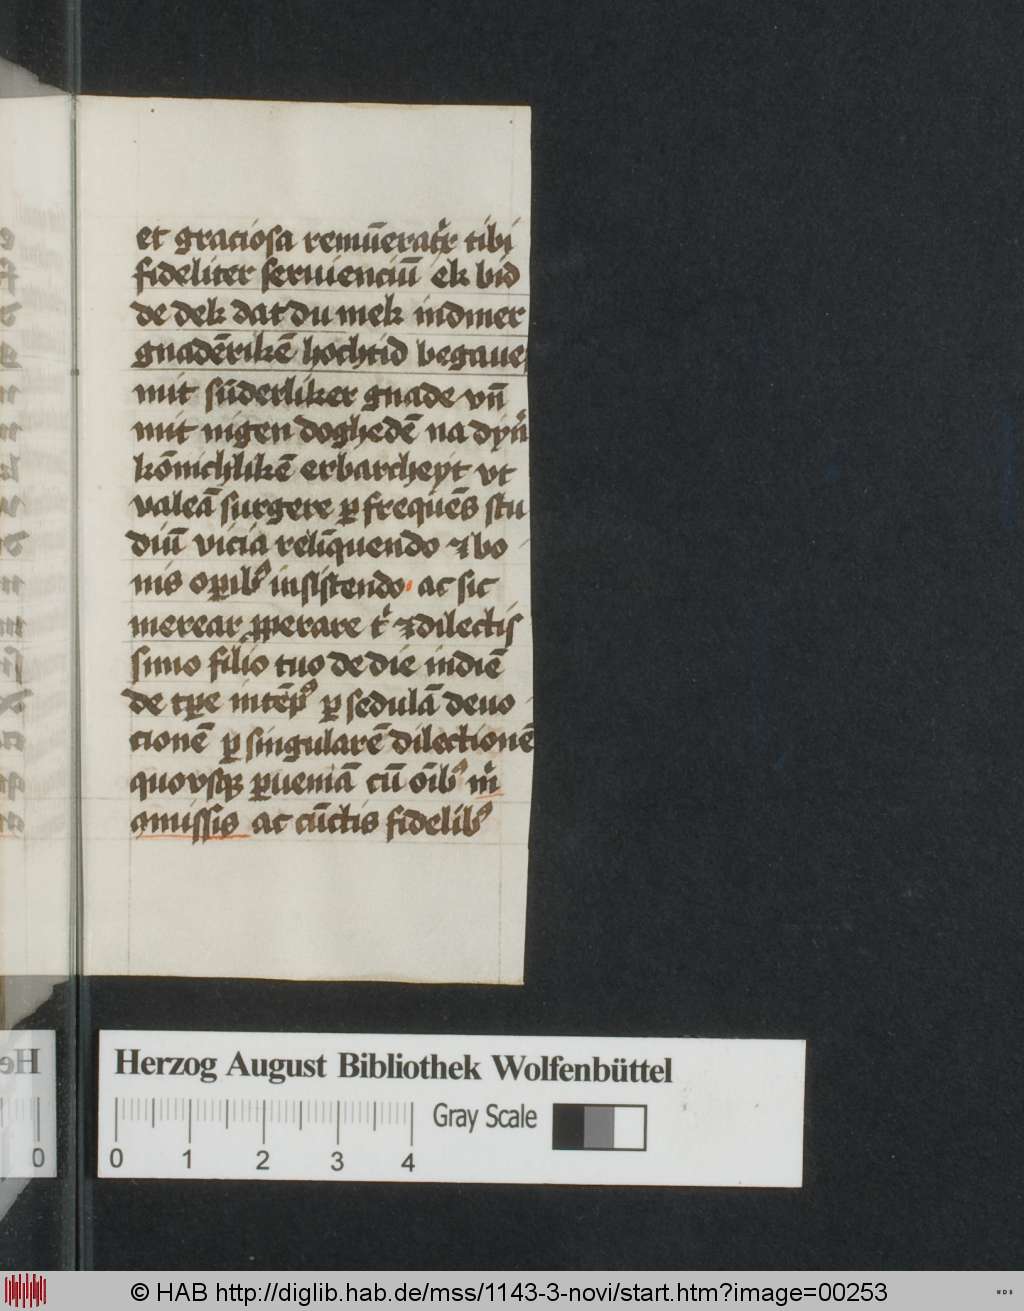 et graciosa remūerat͛r tibi
fideliter seruienciū ek bid
de dek dat du mek indmer
gnadēriken̄ hochtid begaue
mit sūderliker gnade vn̄
mit nigen doghedē na dyn͛
kōnichlikē erbarcheyt vt
valeā surgere ꝑ frequēs stu
diū vicia relīquendo ⁊ bo
nis oꝑibꝫ insistendo · ac sic
merear ꝓperare t͛ ⁊ dilectis
simo filio tuo de die indiē
de tꝑe in tēpꝫ ꝑ sedulā deuo
cionē ꝑ singularē dilectionē
quovsqꝫ ꝑueniā cū oībꝫ m͛
ꝯmissis ac cūctis fidelibꝫ
Herzog August Bibliothek Wolfenbüttel
Gray Scale
0 1 2 3 4
0
© HAB http://diglib.hab.de/mss/1143-3-novi/start.htm?image=00253